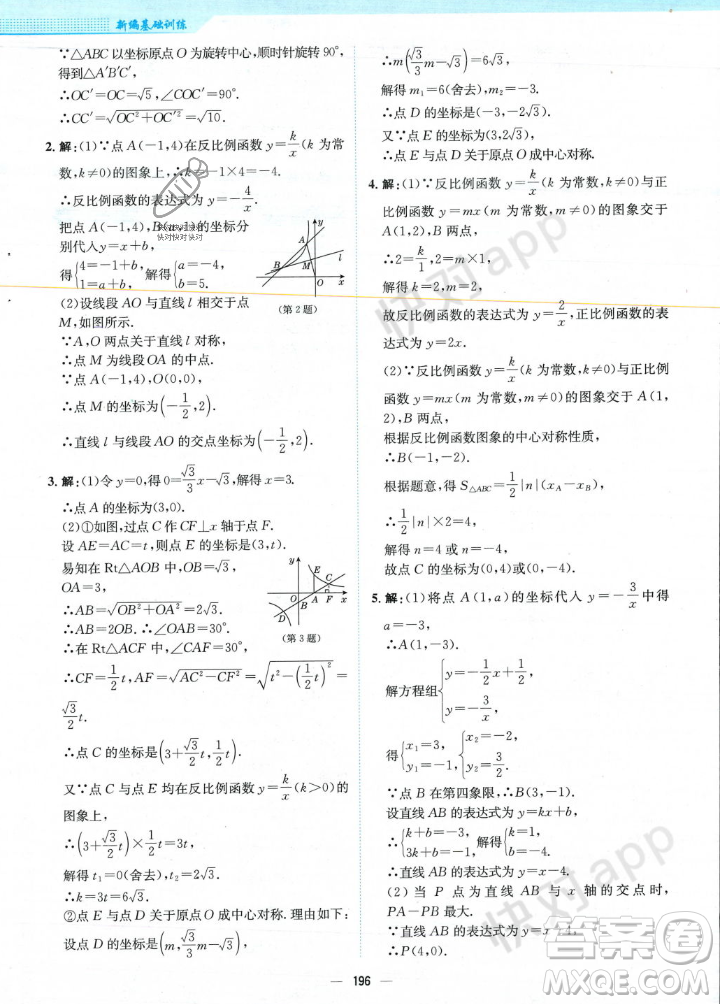 新编基础训练
∵△ABC以坐标原点O为旋转中心，顺时针旋转90°，
得到△A′B′C′，
∴OC′=OC=√5，∠COC′=90°.
∴CC′=√(OC²+OC′²)=√10.
2. 解：(1)∵点A(-1,4)在反比例函数y=k/x(k为常
数，k≠0)的图象上，∴k=-1×4=-4.
∴反比例函数的表达式为y=-4/x.
把点A(-1,4)，B(-4,1)的坐标分
别代入y=x+b，
得{4=-1+b, 1=a+b, 解得{a=-4, b=5.
(2)设线段AO与直线l相交于点
M，如图所示.
∵A，O两点关于直线l对称，
∴点M为线段OA的中点.
∵点A(-1,4)，O(0,0)，
∴点M的坐标为(-1/2,2).
∴直线l与线段AO的交点坐标为(-1/2,2).
y
A
B
M
l
O
x
(第2题)
3. 解：(1)令y=0，得0=√3/3 x-√3，解得x=3.
∴点A的坐标为(3,0).
(2)①如图，过点C作CF⊥x轴于点F.
设AE=AC=t，则点E的坐标为(3,t).
易知在Rt△AOB中，OB=√3，
OA=3，
∴AB=√(OB²+OA²)=2√3.
∴AB=2OB.∴∠OAB=30°.
∴在Rt△ACF中，∠CAF=30°.
∴CF=1/2 t，AF=√(AC²-CF²)=√(t²-(1/2 t)²)=
√3/2 t.
∴点C的坐标是(3+√3/2 t,1/2 t).
又∵点C与点E均在反比例函数y=k/x(k>0)的
图象上，
∴(3+√3/2 t)×1/2 t=3t，
解得t₁=0(舍去)，t₂=2√3.
∴k=3t=6√3.
②点D与点E关于原点O成中心对称.理由如下：
设点D的坐标是(m,√3/3 m-√3)，
(第3题)
∴m(√3/3 m-√3)=6√3，
解得m₁=6(舍去)，m₂=-3.
∴点D的坐标为(-3,-2√3).
又∵点E的坐标为(3,2√3)，
∴点D与点E关于原点O成中心对称.
4. 解：(1)∵反比例函数y=k/x(k为常数，k≠0)与正
比例函数y=mx(m为常数，m≠0)的图象交于
A(1,2)，B两点，
∴2=k/1，2=m×1，
解得k=2，m=2，
故反比例函数的表达式为y=2/x，正比例函数的表
达式为y=2x.
(2)∵反比例函数y=k/x(k≠0)与正比例
函数y=mx(m为常数，m≠0)的图象交于A(1，
2)，B两点，
根据反比例函数图象的中心对称性质，
∴B(-1,-2).
根据题意，得S△ABC=1/2|n|(xA-xB)，
∴1/2|n|×2=4，
解得n=4或n=-4.
故点C的坐标为(0,4)或(0,-4).
5. 解：(1)将点A(1,a)的坐标代入y=-3/x中得
a=-3，
∴A(1,-3).
解方程组{y=-1/2 x+1/2, y=-3/x,
得{x₁=3, y₁=-1, {x₂=-2, y₂=3/2.
∵点B在第四象限，∴B(3,-1).
设直线AB的表达式为y=kx+b，
∴{k+b=-3, 3k+b=-1, 解得{k=1, b=-4.
∴直线AB的表达式为y=x-4.
(2)当P点为直线AB与x轴的交点时，
PA-PB最大.
∵直线AB的表达式为y=x-4，
∴P(4,0).
196
快对快对快对
快对快对快对
快对app
快对app
答案圈
MXQE.COM